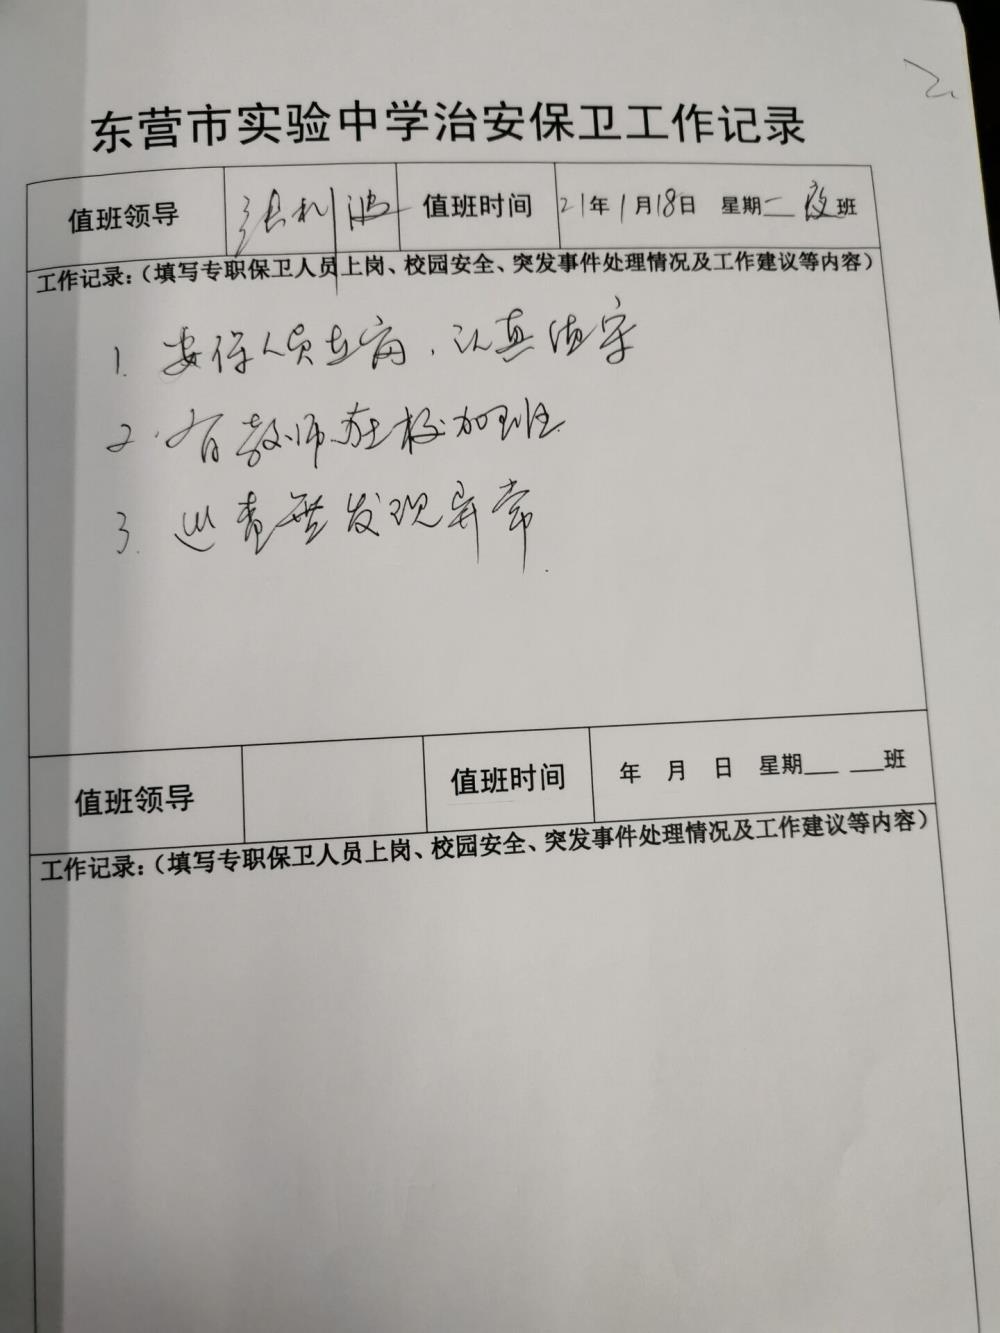 东营市实验中学治安保卫工作记录
值班领导 张利波 值班时间 21年1月18日 星期二 夜班
工作记录：（填写专职保卫人员上岗、校园安全、突发事件处理情况及工作建议等内容）
1. 安保人员在岗，认真值守
2. 有教师在校加班
3. 巡查无发现异常.
值班领导 值班时间 年 月 日 星期___ ___班
工作记录：（填写专职保卫人员上岗、校园安全、突发事件处理情况及工作建议等内容）